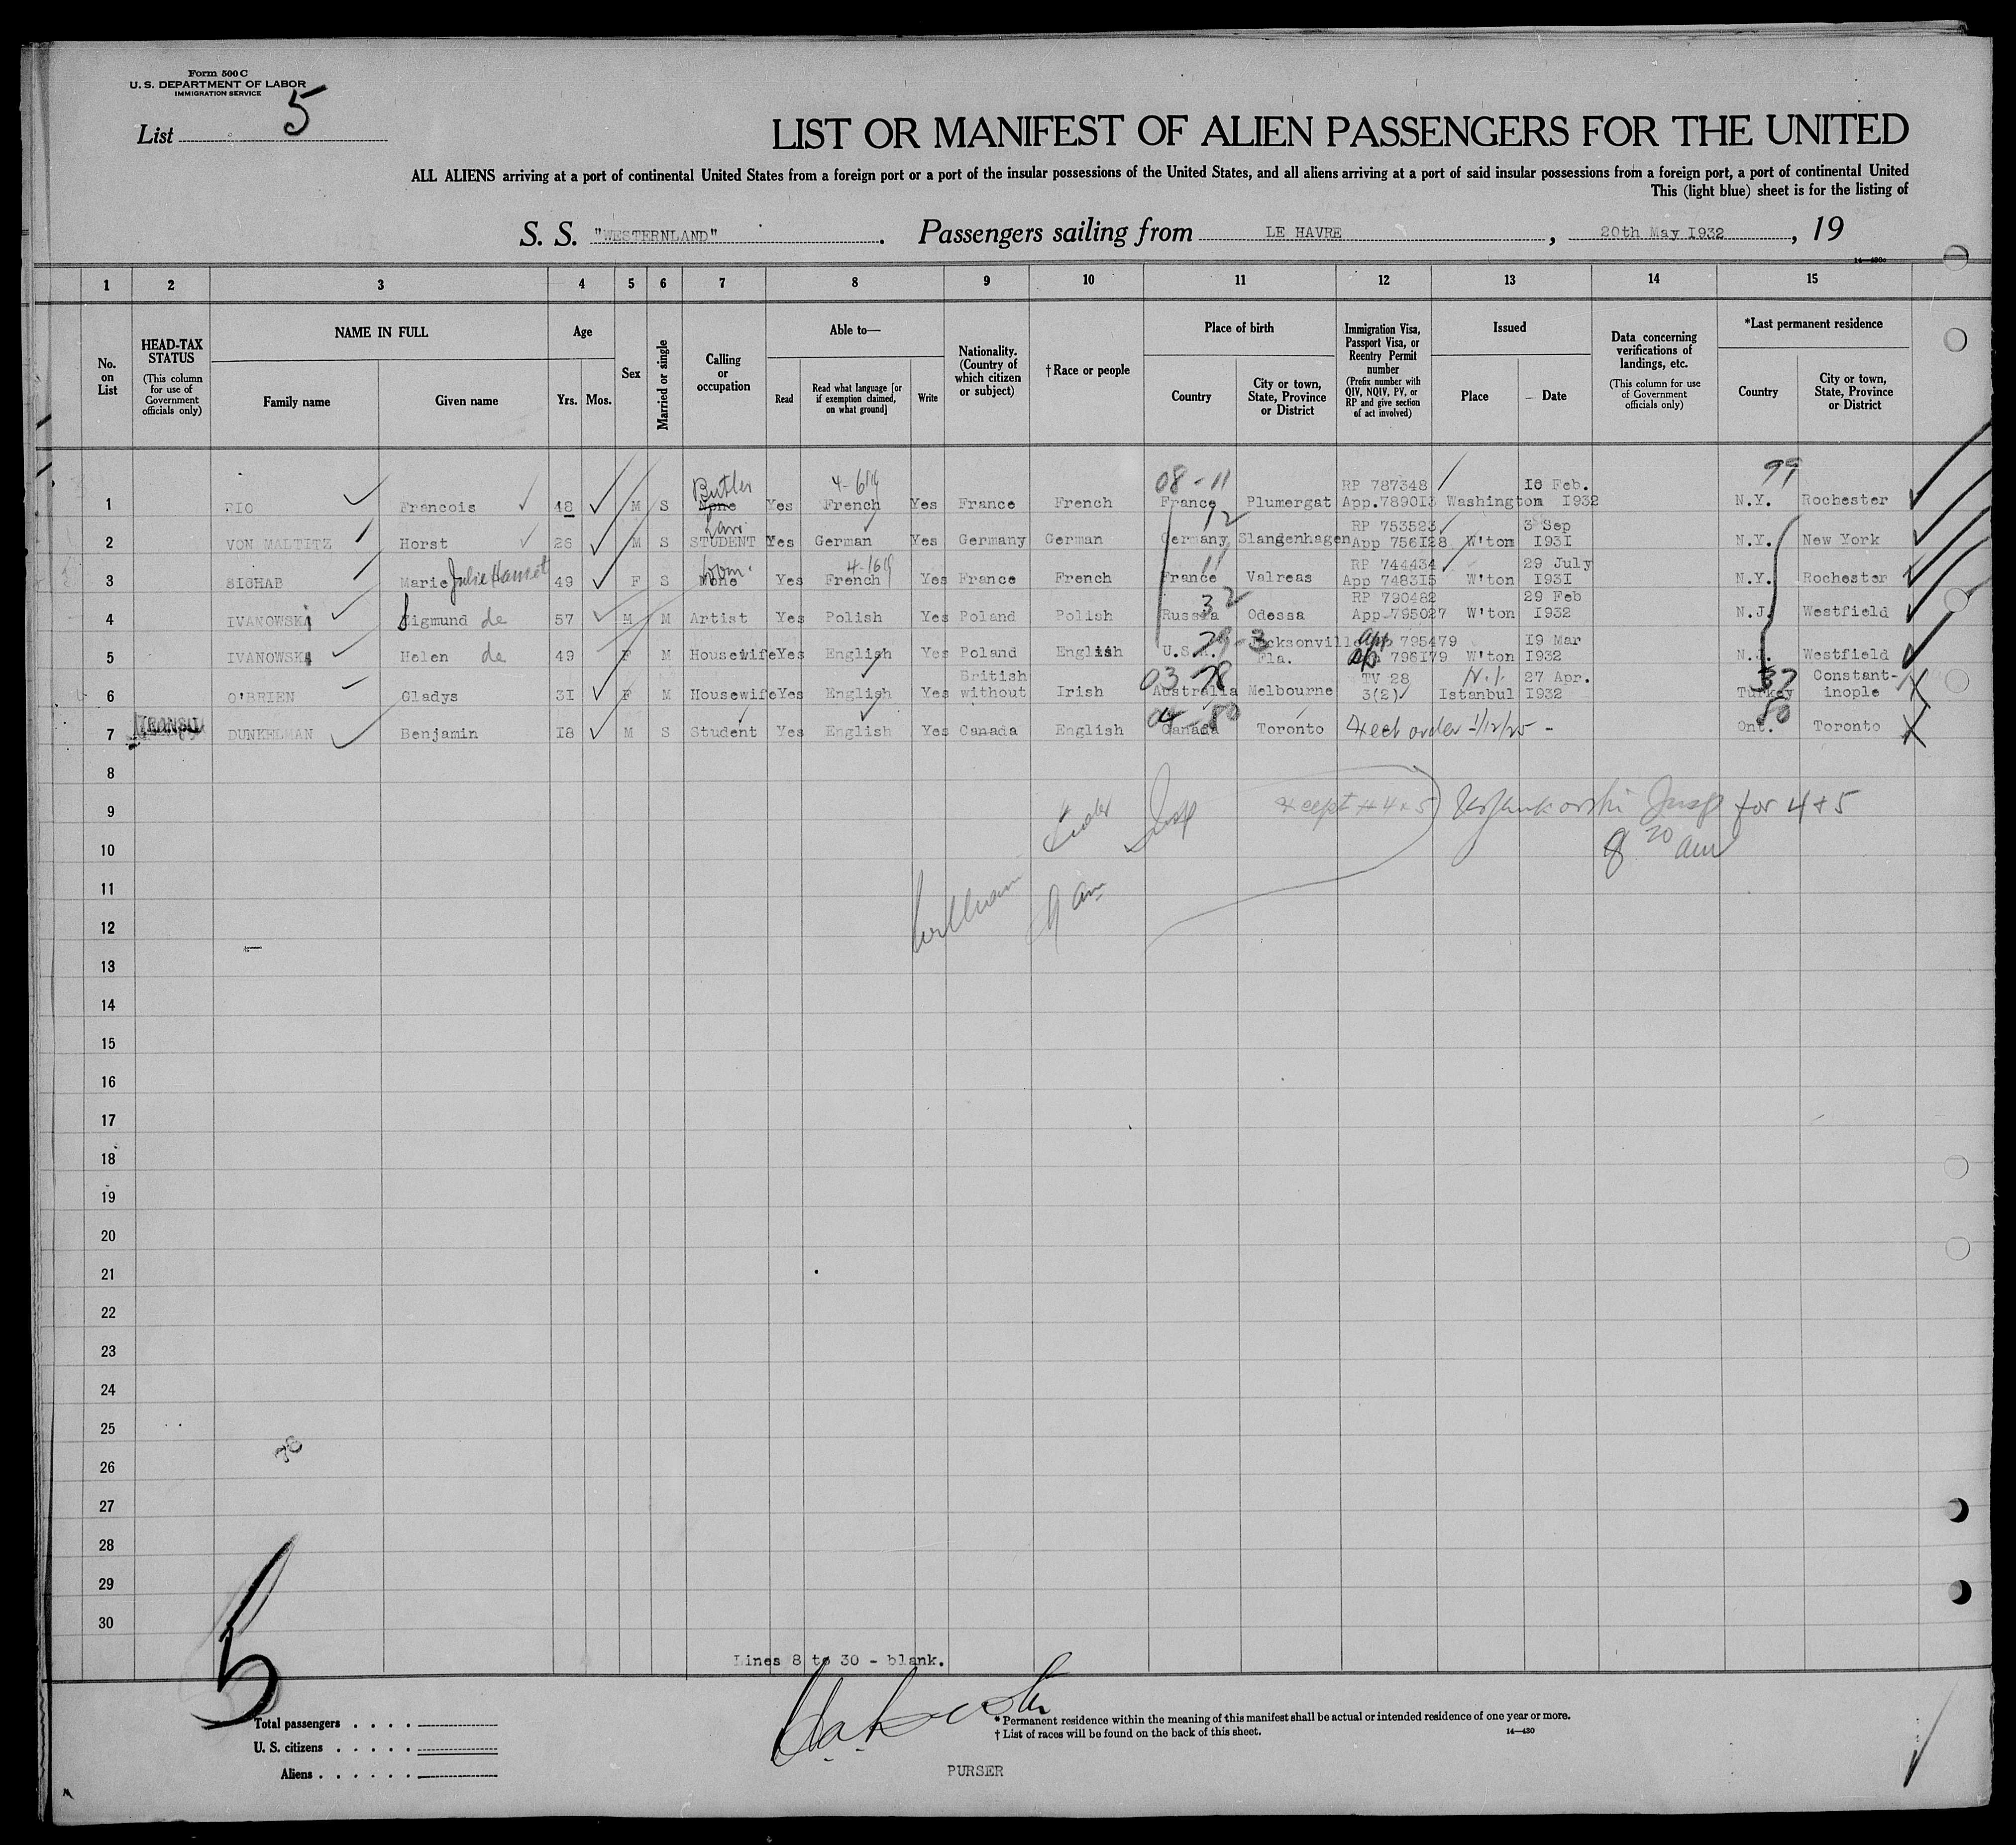 Form 500 C
U. S. DEPARTMENT OF LABOR
IMMIGRATION SERVICE
List 5
LIST OR MANIFEST OF ALIEN PASSENGERS FOR THE UNITED
ALL ALIENS arriving at a port of continental United States from a foreign port or a port of the insular possessions of the United States, and all aliens arriving at a port of said insular possessions from a foreign port, a port of continental United
This (light blue) sheet is for the listing of
S. S. "WESTERNLAND". Passengers sailing from LE HAVRE, 20th May 1932, 19
14—430
1 2 3 4 5 6 7 8 9 10 11 12 13 14 15
No. on List
HEAD-TAX STATUS
(This column for use of Government officials only)
NAME IN FULL
Family name
Given name
Age
Yrs.
Mos.
Sex
Married or single
Calling or occupation
Able to—
Read
Read what language [or if exemption claimed, on what ground]
Write
Nationality. (Country of which citizen or subject)
†Race or people
Place of birth
Country
City or town, State, Province or District
Immigration Visa, Passport Visa, or Reentry Permit number
(Prefix number with QIV, NQIV, PV, or RP and give section of act involved)
Issued
Place
Date
Data concerning verifications of landings, etc.
(This column for use of Government officials only)
*Last permanent residence
Country
City or town, State, Province or District
Butler 08-11 RP 787348 18 Feb. 99
1 FIO Francois 48 M S None Yes French Yes France French France Plumergat App.789013 Washington 1932 N.Y. Rochester
12 RP 753523 3 Sep
2 VON MALTITZ Horst 26 M S STUDENT Yes German Yes Germany German Germany Slangenhagen App 756128 W'ton 1931 N.Y. New York
11 RP 744434 29 July
3 SIGHAB Marie Julie 49 F S None Yes French Yes France French France Valreas App 748315 W'ton 1931 N.Y. Rochester
32 RP 790482 29 Feb
4 IVANOWSKI Sigmund de 57 M M Artist Yes Polish Yes Poland Polish Russia Odessa App 795027 W'ton 1932 N.J. Westfield
Jacksonville App 795479 19 Mar
5 IVANOWSKI Helen de 49 F M Housewife Yes English Yes Poland English U.S.A. Fla. 796179 W'ton 1932 N.J. Westfield
British 03 78 TV 28 N.I. 27 Apr. 37 Constant-
6 O'BRIEN Gladys 31 F M Housewife Yes English Yes without Irish Australia Melbourne 3(2) Istanbul 1932 Turkey inople
50
7 DUNKELMAN Benjamin 18 M S Student Yes English Yes Canada English Canada Toronto order 1/12/25 - Ont. Toronto
8
9 Insp except #4+5 Insp for 4+5
10 8 20 am
11 9 am
12
13
14
15
16
17
18
19
20
21
22
23
24
25
26
27
28
29
30
Lines 8 to 30 - blank.
5
Total passengers
U. S. citizens
Aliens
* Permanent residence within the meaning of this manifest shall be actual or intended residence of one year or more.
† List of races will be found on the back of this sheet.
14—430
PURSER